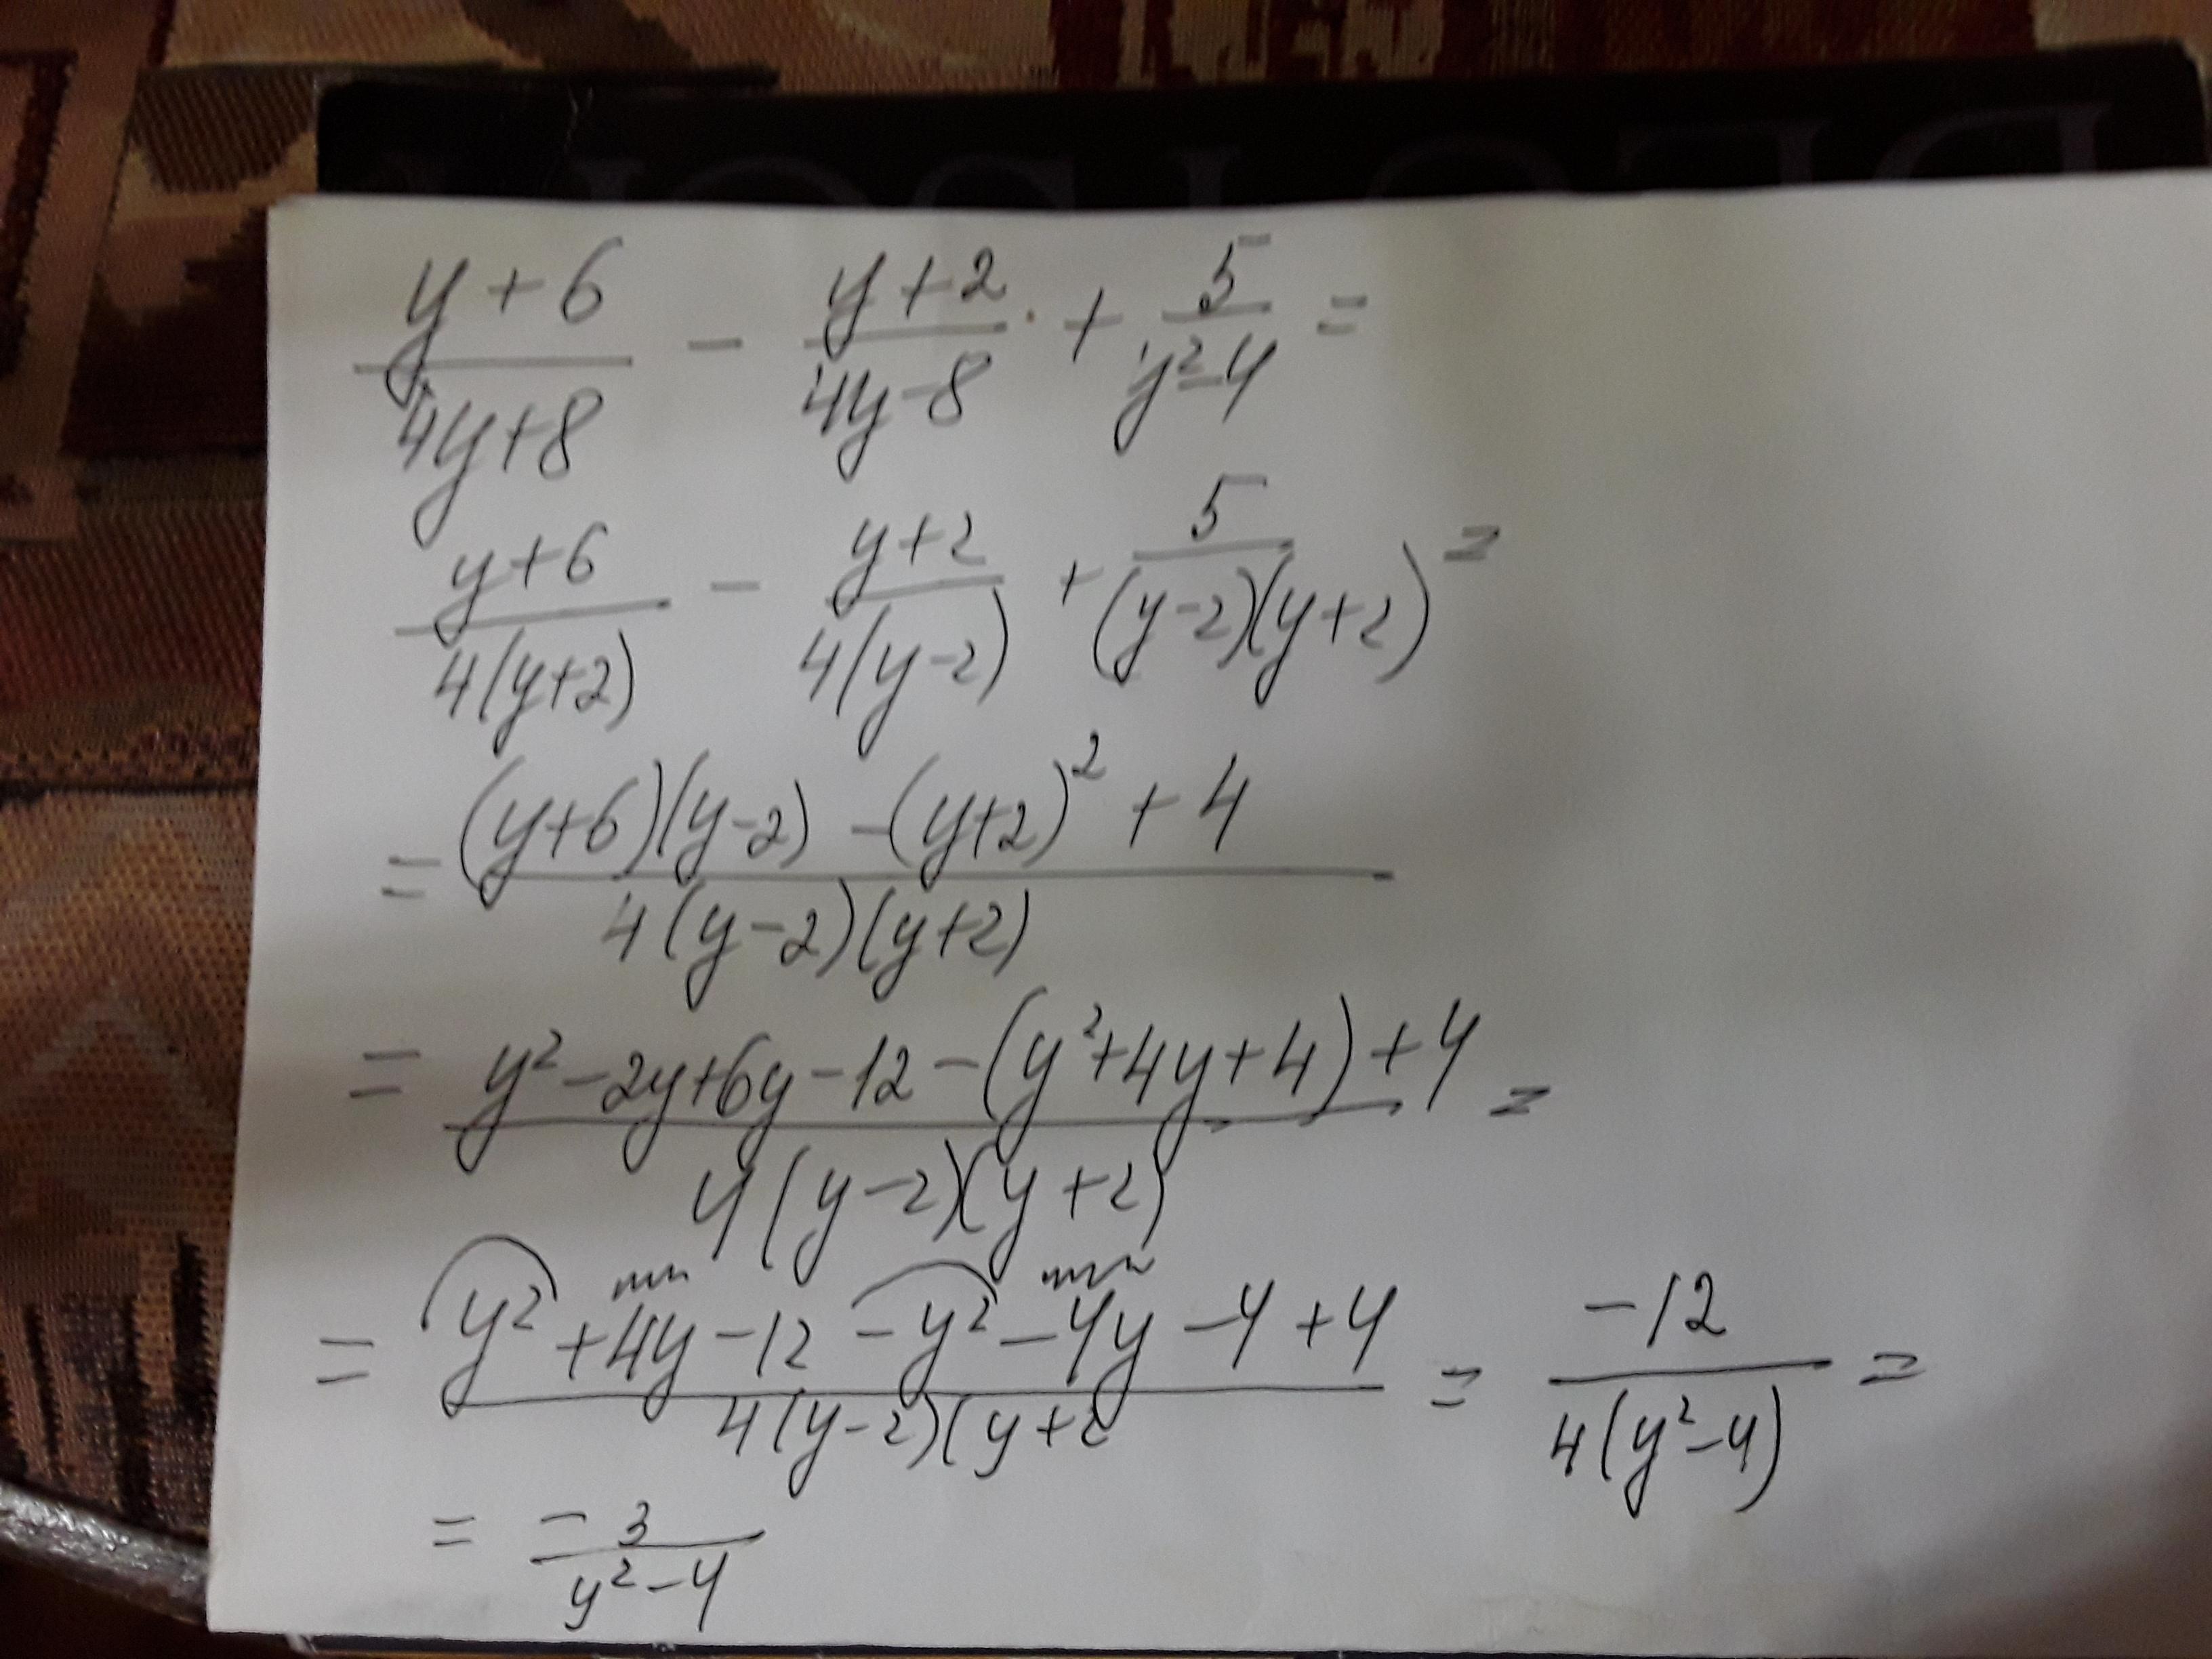 (y+6)/(4y+8) - (y+2)/(4y-8) + 5/(y²-4) =
(y+6)/(4(y+2)) - (y+2)/(4(y-2)) + 5/((y-2)(y+2)) =
= ((y+6)(y-2) - (y+2)² + 4)/(4(y-2)(y+2))
= (y² - 2y + 6y - 12 - (y² + 4y + 4) + 4)/(4(y-2)(y+2)) =
= (y² + 4y - 12 - y² - 4y - 4 + 4)/(4(y-2)(y+2) = -12/(4(y²-4)) =
= -3/(y²-4)